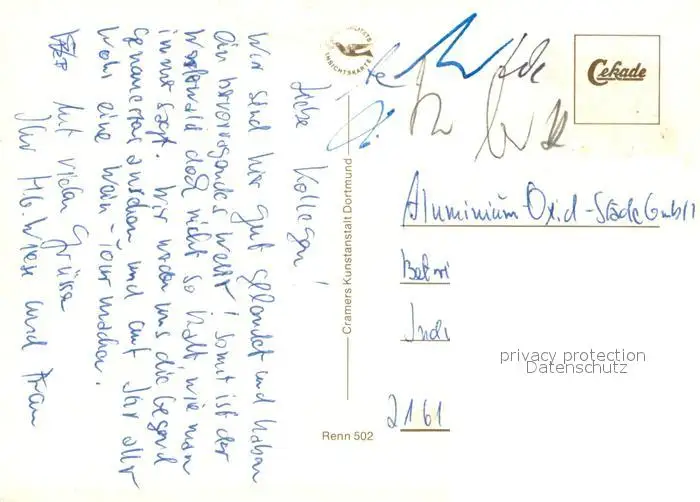 Liebe Kollegen!
Wir sind hier gut gelandet und haben
ein hervorragendes Wetter! Somit ist der
Westerwald doch nicht so kalt, wie man
immer sagt. Wir werden uns die Gegend
genauer ansehen und auf Ihr aller
Wohl eine Wein-Tour machen.
Mit vielen Grüssen
Ihr H.G. Wiese und Frau
ANSICHTSKARTE
Cramers Kunstanstalt Dortmund
Renn 502
Cekade
Aluminium-Oxid-Stade GmbH
2161
privacy protection
Datenschutz